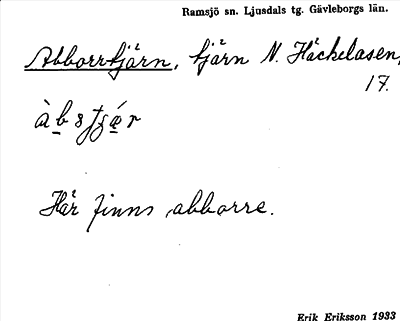 Ramsjö sn. Ljusdals tg. Gävleborgs län.
Abborrtjärn, tjärn N. Häckelasen,
17.
àbstjǽr
Här finns abborre.
Erik Eriksson 1933